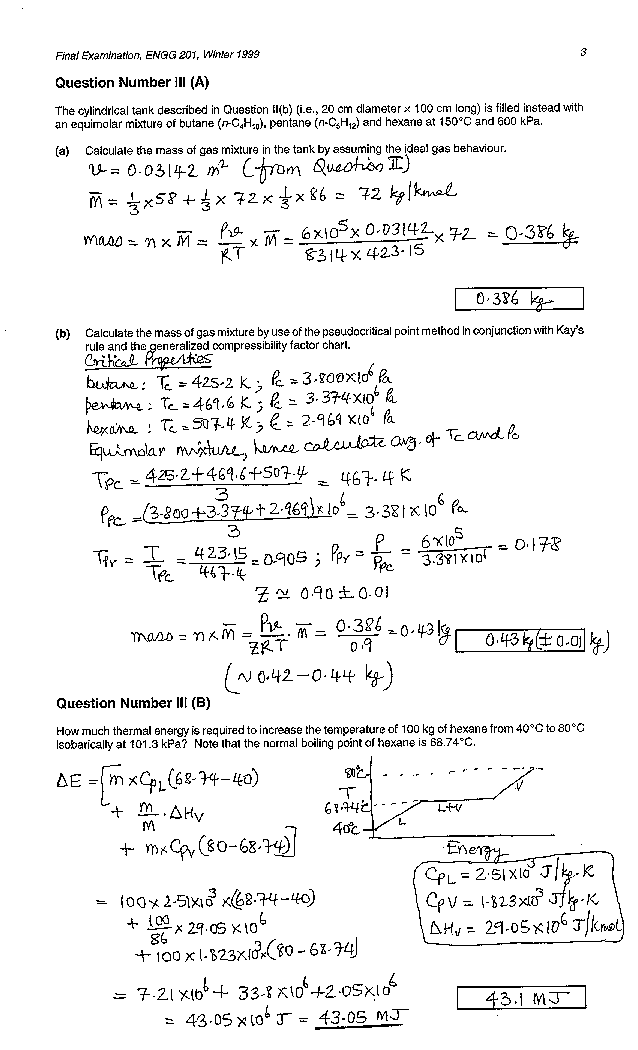 Final Examination, ENGG 201, Winter 1999 3
Question Number III (A)
The cylindrical tank described in Question II(b) (i.e., 20 cm diameter x 100 cm long) is filled instead with
an equimolar mixture of butane (n-C₄H₁₀), pentane (n-C₅H₁₂) and hexane at 150°C and 600 kPa.
(a) Calculate the mass of gas mixture in the tank by assuming the ideal gas behaviour.
v = 0.03142 m² (from Question II)
M̄ = 1/3 × 58 + 1/3 × 72 × 1/3 × 86 = 72 kg/kmol
mass = n × M̄ = Pv/RT × M̄ = 6×10⁵ × 0.03142 / 8314 × 423.15 × 72 = 0.386 kg
0.386 kg
(b) Calculate the mass of gas mixture by use of the pseudocritical point method in conjunction with Kay's
rule and the generalized compressibility factor chart.
Critical Properties
butane: Tc = 425.2 K; Pc = 3.800×10⁶ Pa
pentane: Tc = 469.6 K; Pc = 3.374×10⁶ Pa
hexane: Tc = 507.4 K; Pc = 2.969 ×10⁶ Pa
Equimolar mixture, hence calculate avg. of Tc and Pc
Tpc = 425.2 + 469.6 + 507.4 / 3 = 467.4 K
Ppc = (3.800 + 3.374 + 2.969)×10⁶ / 3 = 3.381 × 10⁶ Pa
Tpr = T/Tpc = 423.15/467.4 = 0.905; Ppr = P/Ppc = 6×10⁵/3.381×10⁶ = 0.178
Z ≃ 0.90 ± 0.01
mass = n × M̄ = Pv/ZRT · M̄ = 0.386/0.9 = 0.43 kg 0.43 kg (± 0.01 kg)
(~ 0.42 - 0.44 kg)
Question Number III (B)
How much thermal energy is required to increase the temperature of 100 kg of hexane from 40°C to 80°C
isobarically at 101.3 kPa? Note that the normal boiling point of hexane is 68.74°C.
ΔE = [m × CpL (68.74 - 40)
+ m/M · ΔHv
+ m × Cpv (80 - 68.74)]
80°C
T
68.74°C
40°C
L
L+V
V
Energy
CpL = 2.51×10³ J/kg·K
CpV = 1.823×10³ J/kg·K
ΔHv = 29.05 ×10⁶ J/kmol
= 100 × 2.51×10³ × (68.74 - 40)
+ 100/86 × 29.05 ×10⁶
+ 100 × 1.823×10³ × (80 - 68.74)
= 7.21 ×10⁶ + 33.8 ×10⁶ + 2.05×10⁶
= 43.05 ×10⁶ J = 43.05 MJ
43.1 MJ